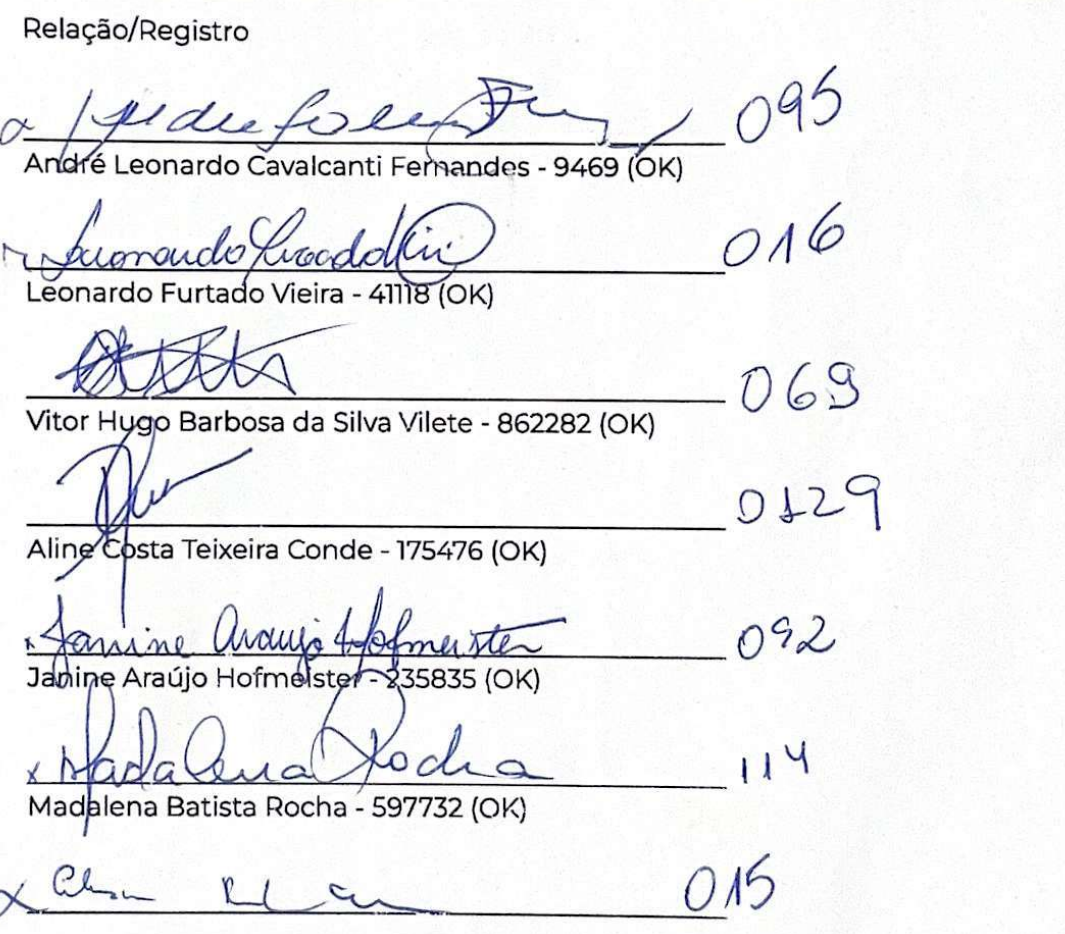 Relação/Registro
095
André Leonardo Cavalcanti Fernandes - 9469 (OK)
016
Leonardo Furtado Vieira - 41118 (OK)
069
Vitor Hugo Barbosa da Silva Vilete - 862282 (OK)
0129
Aline Costa Teixeira Conde - 175476 (OK)
Janine Araujo Hofmeister 092
Janine Araújo Hofmeister - 235835 (OK)
x Madalena Rocha 114
Madalena Batista Rocha - 597732 (OK)
x 015